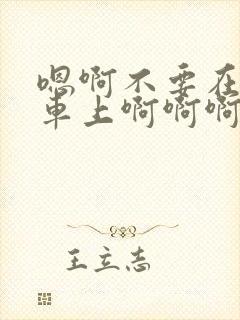 嗯啊不要在
車上啊啊啊
王立志